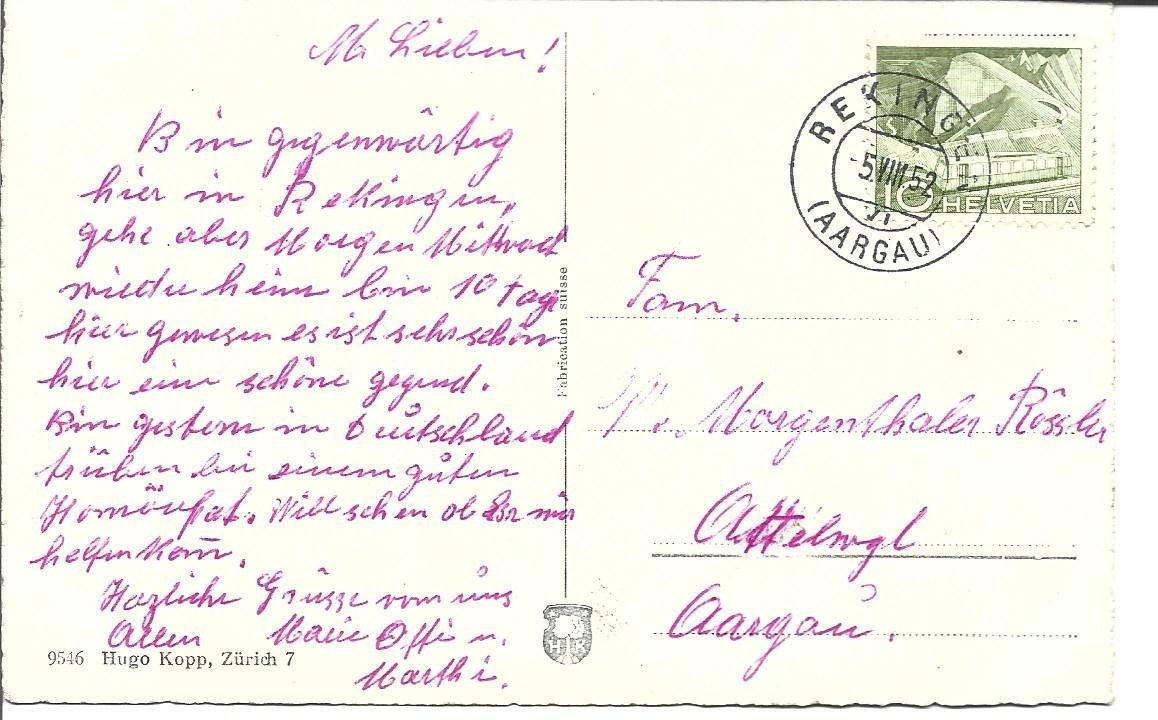 M. Lieben!
Bin gegenwärtig
hier in Rekingen,
gehe aber Morgen Mittwoch
wieder heim bin 10 Tage
hier gewesen es ist sehr schön
hier eine schöne gegend.
Bin gestern in Deutschland
trüben bei einem guten
Homöopat. Will sehen ob Er mir
helfen kann.
Herzliche Grüsse vom uns
Allen Marie Otti u.
Marthi.
9546 Hugo Kopp, Zürich 7
Fabrication suisse
HK
REKINGEN
-5.VIII.52
VI
(AARGAU)
10 HELVETIA
Fam.
Morgenthaler Rössler
Attelwyl
Aargau.